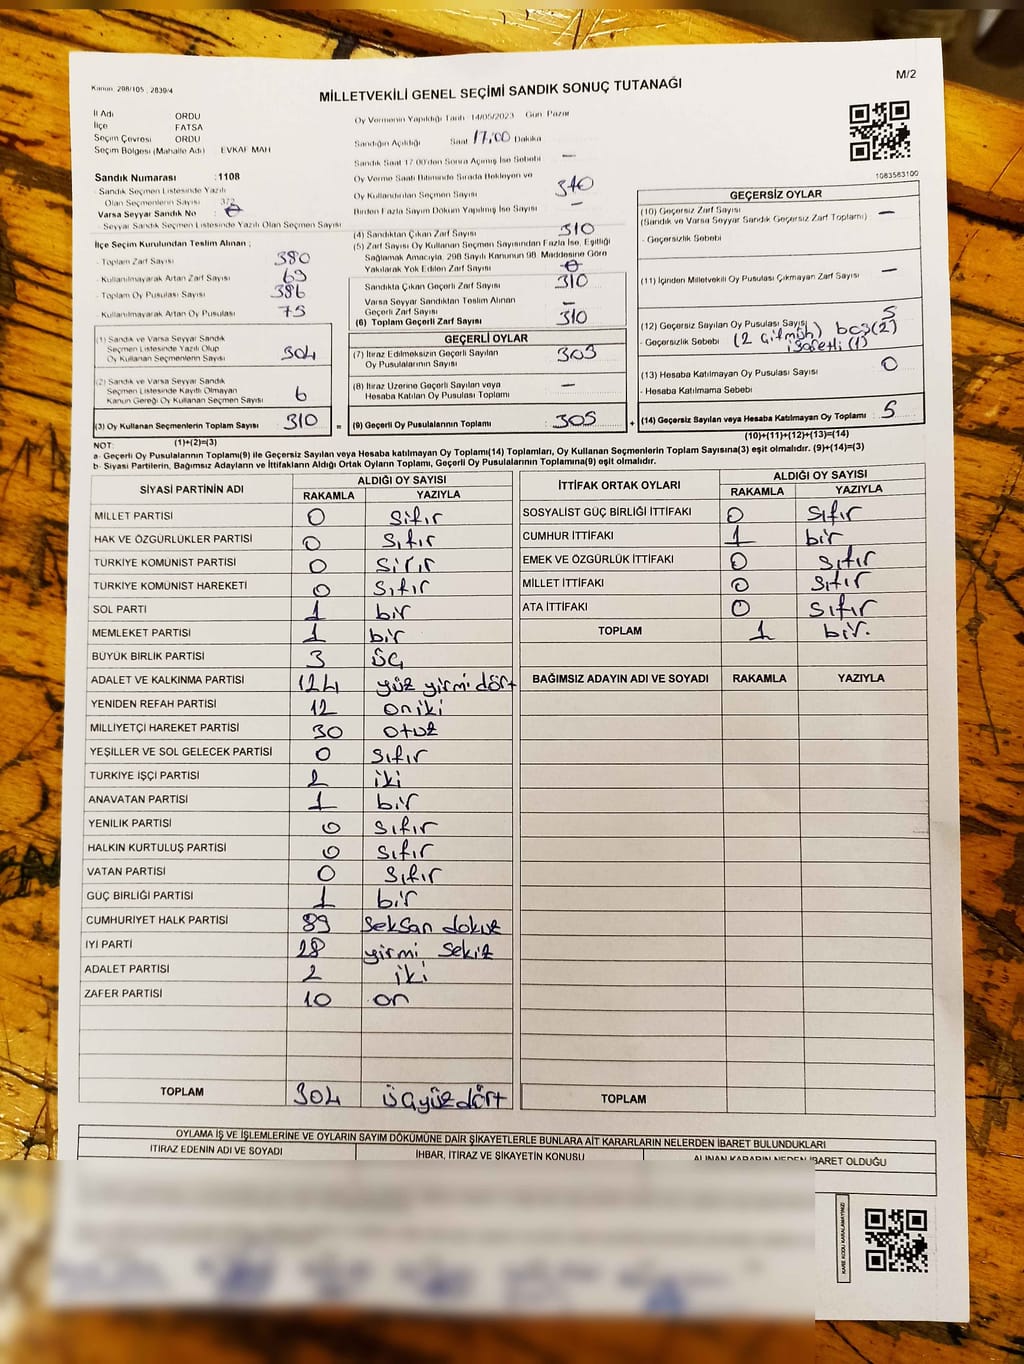 Kanun: 298/105, 2839/4
M/2
MİLLETVEKİLİ GENEL SEÇİMİ SANDIK SONUÇ TUTANAĞI
İl Adı ORDU
İlçe FATSA
Seçim Çevresi ORDU
Seçim Bölgesi (Mahalle Adı) EVKAF MAH
Sandık Numarası : 1108
- Sandık Seçmen Listesinde Yazılı
Olan Seçmenlerin Sayısı 372
Varsa Seyyar Sandık No : 0
- Seyyar Sandık Seçmen Listesinde Yazılı Olan Seçmen Sayısı
İlçe Seçim Kurulundan Teslim Alınan ;
- Toplam Zarf Sayısı 380
- Kullanılmayarak Artan Zarf Sayısı 69
- Toplam Oy Pusulası Sayısı 386
- Kullanılmayarak Artan Oy Pusulası 75
(1) Sandık ve Varsa Seyyar Sandık
Seçmen Listesinde Yazılı Olup
Oy Kullanan Seçmenlerin Sayısı 304
(2) Sandık ve Varsa Seyyar Sandık
Seçmen Listesinde Kayıtlı Olmayan
Kanun Gereği Oy Kullanan Seçmen Sayısı 6
(3) Oy Kullanan Seçmenlerin Toplam Sayısı 310 =
(1)+(2)=(3)
Oy Vermenin Yapıldığı Tarih 14/05/2023 Gün Pazar
Sandığın Açıldığı Saat 17,00 Dakika
Sandık Saat 17:00'den Sonra Açılmış İse Sebebi —
Oy Verme Saati Bitiminde Sırada Bekleyen ve
Oy Kullandırılan Seçmen Sayısı 310
Birden Fazla Sayım Döküm Yapılmış İse Sayısı —
(4) Sandıktan Çıkan Zarf Sayısı 310
(5) Zarf Sayısı Oy Kullanan Seçmen Sayısından Fazla İse, Eşitliği
Sağlamak Amacıyla, 298 Sayılı Kanunun 98. Maddesine Göre
Yakılarak Yok Edilen Zarf Sayısı 0
Sandıkta Çıkan Geçerli Zarf Sayısı 310
Varsa Seyyar Sandıktan Teslim Alınan
Geçerli Zarf Sayısı —
(6) Toplam Geçerli Zarf Sayısı 310
GEÇERLİ OYLAR
(7) İtiraz Edilmeksizin Geçerli Sayılan
Oy Pusulalarının Sayısı 305
(8) İtiraz Üzerine Geçerli Sayılan veya
Hesaba Katılan Oy Pusulası Toplamı —
(9) Geçerli Oy Pusulalarının Toplamı 305 +
1083583100
GEÇERSİZ OYLAR
(10) Geçersiz Zarf Sayısı —
(Sandık ve Varsa Seyyar Sandık Geçersiz Zarf Toplamı)
- Geçersizlik Sebebi
(11) İçinden Milletvekili Oy Pusulası Çıkmayan Zarf Sayısı —
(12) Geçersiz Sayılan Oy Pusulası Sayısı 5
- Geçersizlik Sebebi (2 çift mühür) boş(2)
işaretli (1)
(13) Hesaba Katılmayan Oy Pusulası Sayısı 0
- Hesaba Katılmama Sebebi
(14) Geçersiz Sayılan veya Hesaba Katılmayan Oy Toplamı 5
(10)+(11)+(12)+(13)=(14)
NOT:
a- Geçerli Oy Pusulaları Toplamı(9) ile Geçersiz Sayılan veya Hesaba katılmayan Oy Toplamı(14) Toplamları, Oy Kullanan Seçmenlerin Toplam Sayısına(3) eşit olmalıdır. (9)+(14)=(3)
b- Siyasi Partilerin, Bağımsız Adayların ve İttifakların Aldığı Ortak Oyların Toplamı, Geçerli Oy Pusulalarının Toplamına(9) eşit olmalıdır.
SİYASİ PARTİNİN ADI ALDIĞI OY SAYISI
RAKAMLA YAZIYLA
MİLLET PARTİSİ 0 sıfır
HAK VE ÖZGÜRLÜKLER PARTİSİ 0 sıfır
TÜRKİYE KOMÜNİST PARTİSİ 0 sıfır
TÜRKİYE KOMÜNİST HAREKETİ 0 sıfır
SOL PARTİ 1 bir
MEMLEKET PARTİSİ 1 bir
BÜYÜK BİRLİK PARTİSİ 3 üç
ADALET VE KALKINMA PARTİSİ 124 yüz yirmi dört
YENİDEN REFAH PARTİSİ 12 oniki
MİLLİYETÇİ HAREKET PARTİSİ 30 otuz
YEŞİLLER VE SOL GELECEK PARTİSİ 0 sıfır
TÜRKİYE İŞÇİ PARTİSİ 2 iki
ANAVATAN PARTİSİ 1 bir
YENİLİK PARTİSİ 0 sıfır
HALKIN KURTULUŞ PARTİSİ 0 sıfır
VATAN PARTİSİ 0 sıfır
GÜÇ BİRLİĞİ PARTİSİ 1 bir
CUMHURİYET HALK PARTİSİ 89 seksan dokuz
İYİ PARTİ 28 yirmi sekiz
ADALET PARTİSİ 2 iki
ZAFER PARTİSİ 10 on
TOPLAM 304 üçyüzdört
İTTİFAK ORTAK OYLARI ALDIĞI OY SAYISI
RAKAMLA YAZIYLA
SOSYALİST GÜÇ BİRLİĞİ İTTİFAKI 0 sıfır
CUMHUR İTTİFAKI 1 bir
EMEK VE ÖZGÜRLÜK İTTİFAKI 0 sıfır
MİLLET İTTİFAKI 0 sıfır
ATA İTTİFAKI 0 sıfır
TOPLAM 1 bir.
BAĞIMSIZ ADAYIN ADI VE SOYADI RAKAMLA YAZIYLA
TOPLAM
OYLAMA İŞ VE İŞLEMLERİNE VE OYLARIN SAYIM DÖKÜMÜNE DAİR ŞİKAYETLERLE BUNLARA AİT KARARLARIN NELERDEN İBARET BULUNDUKLARI
İTİRAZ EDENİN ADI VE SOYADI İHBAR, İTİRAZ VE ŞİKAYETİN KONUSU ALINAN KARARIN NEDEN İBARET OLDUĞU
KARE KODU KARALAMAYINIZ!